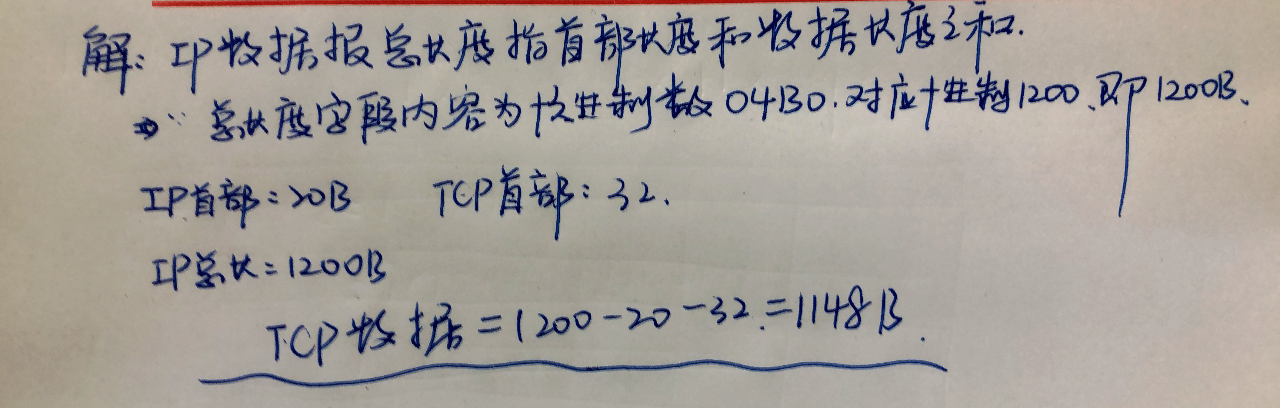 解: IP数据报总长度指首部长度和数据长度之和.
⇒ ∵ 总长度字段内容为十六进制数 04B0. 对应十进制1200、即1200B、
IP首部: 20B TCP首部: 32.
IP总长 = 1200B
TCP数据 = 1200-20-32. = 1148B.